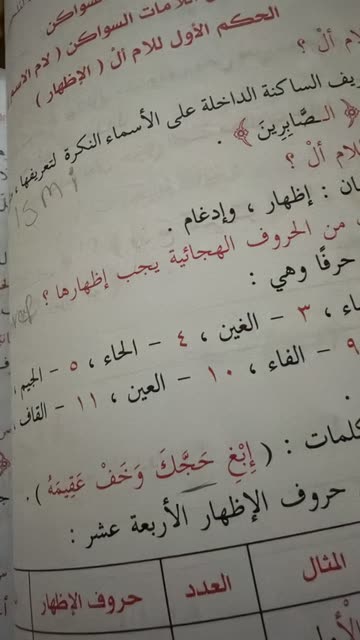 اللامات السواكن
السواكن ( لام الاسم
الحكم الأول للام ألْ ( الإظهار )
لام ألْ ؟
الساكنة الداخلة على الأسماء النكرة لتعريفها،
﴿ الـصَّابِرِينَ ﴾ .
لام ألْ ؟
ISMi
: إظهار ، وإدغام .
من الحروف الهجائية يجب إظهارها ؟
حرفًا وهي :
، ٣ - الغين ، ٤ - الحاء ، ٥ - الجيم ،
٩ - الفاء ، ١٠ - العين ، ١١ - القاف ،
.
كلمات : ( إِبْغِ حَجَّكَ وَخَفْ عَقِيمَهُ ) .
حروف الإظهار الأربعة عشر :
المثال العدد حروف الإظهار